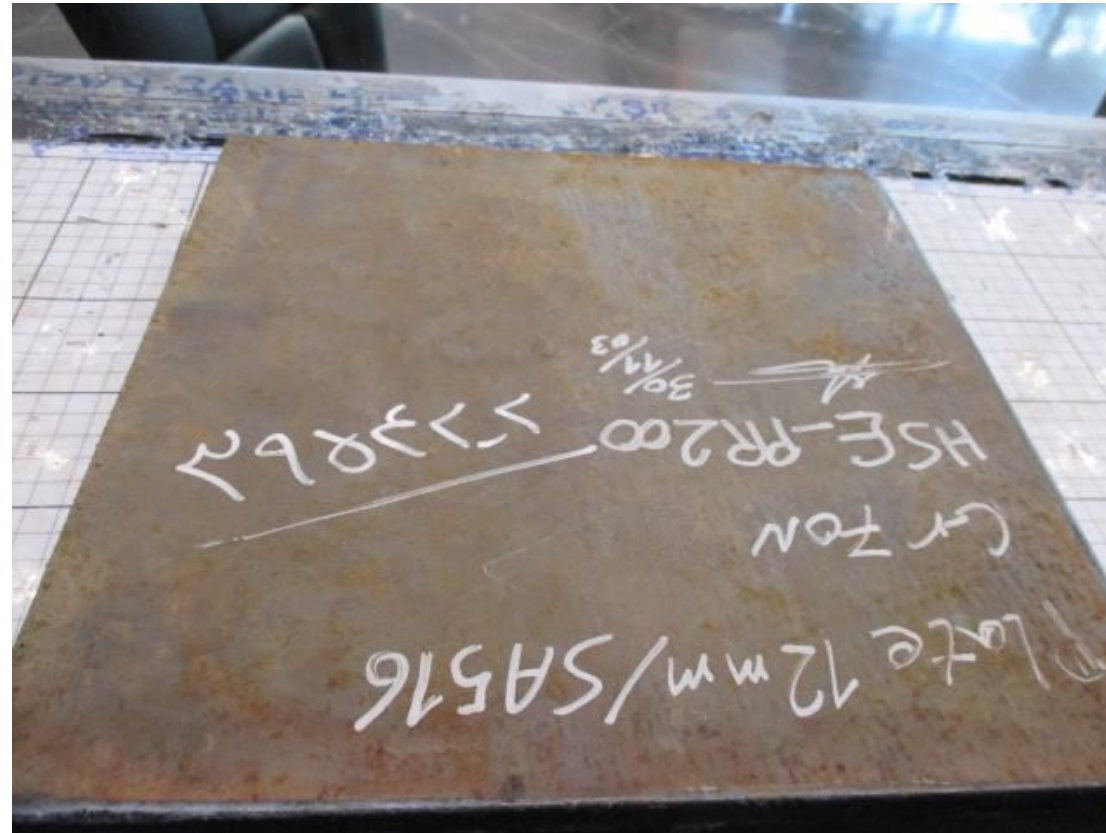 Plate 12mm/SA516
Gr 70N
HSE-PR200
30/11/03